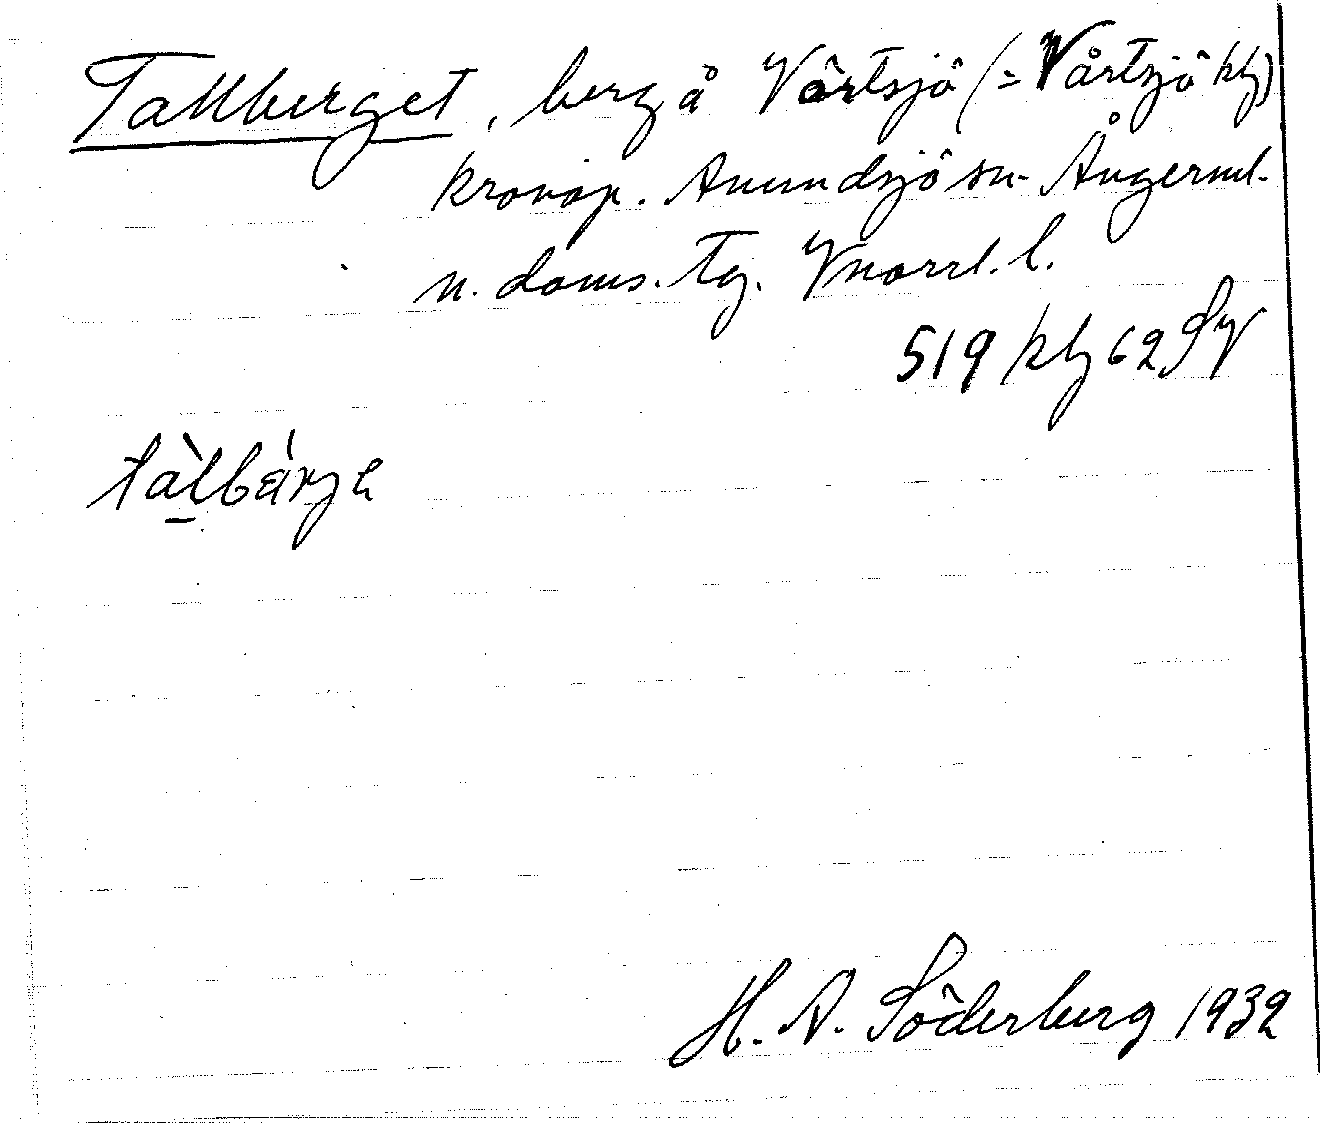 Tallberget, berg å Vårtsjö (= Vårtsjö kbg)
kronop. Anundsjö sn. Ångerml.
n. doms. tg. Vnorrl. l.
519 kbg 62 SV
tàlbárjə
H. A. Söderberg 1932